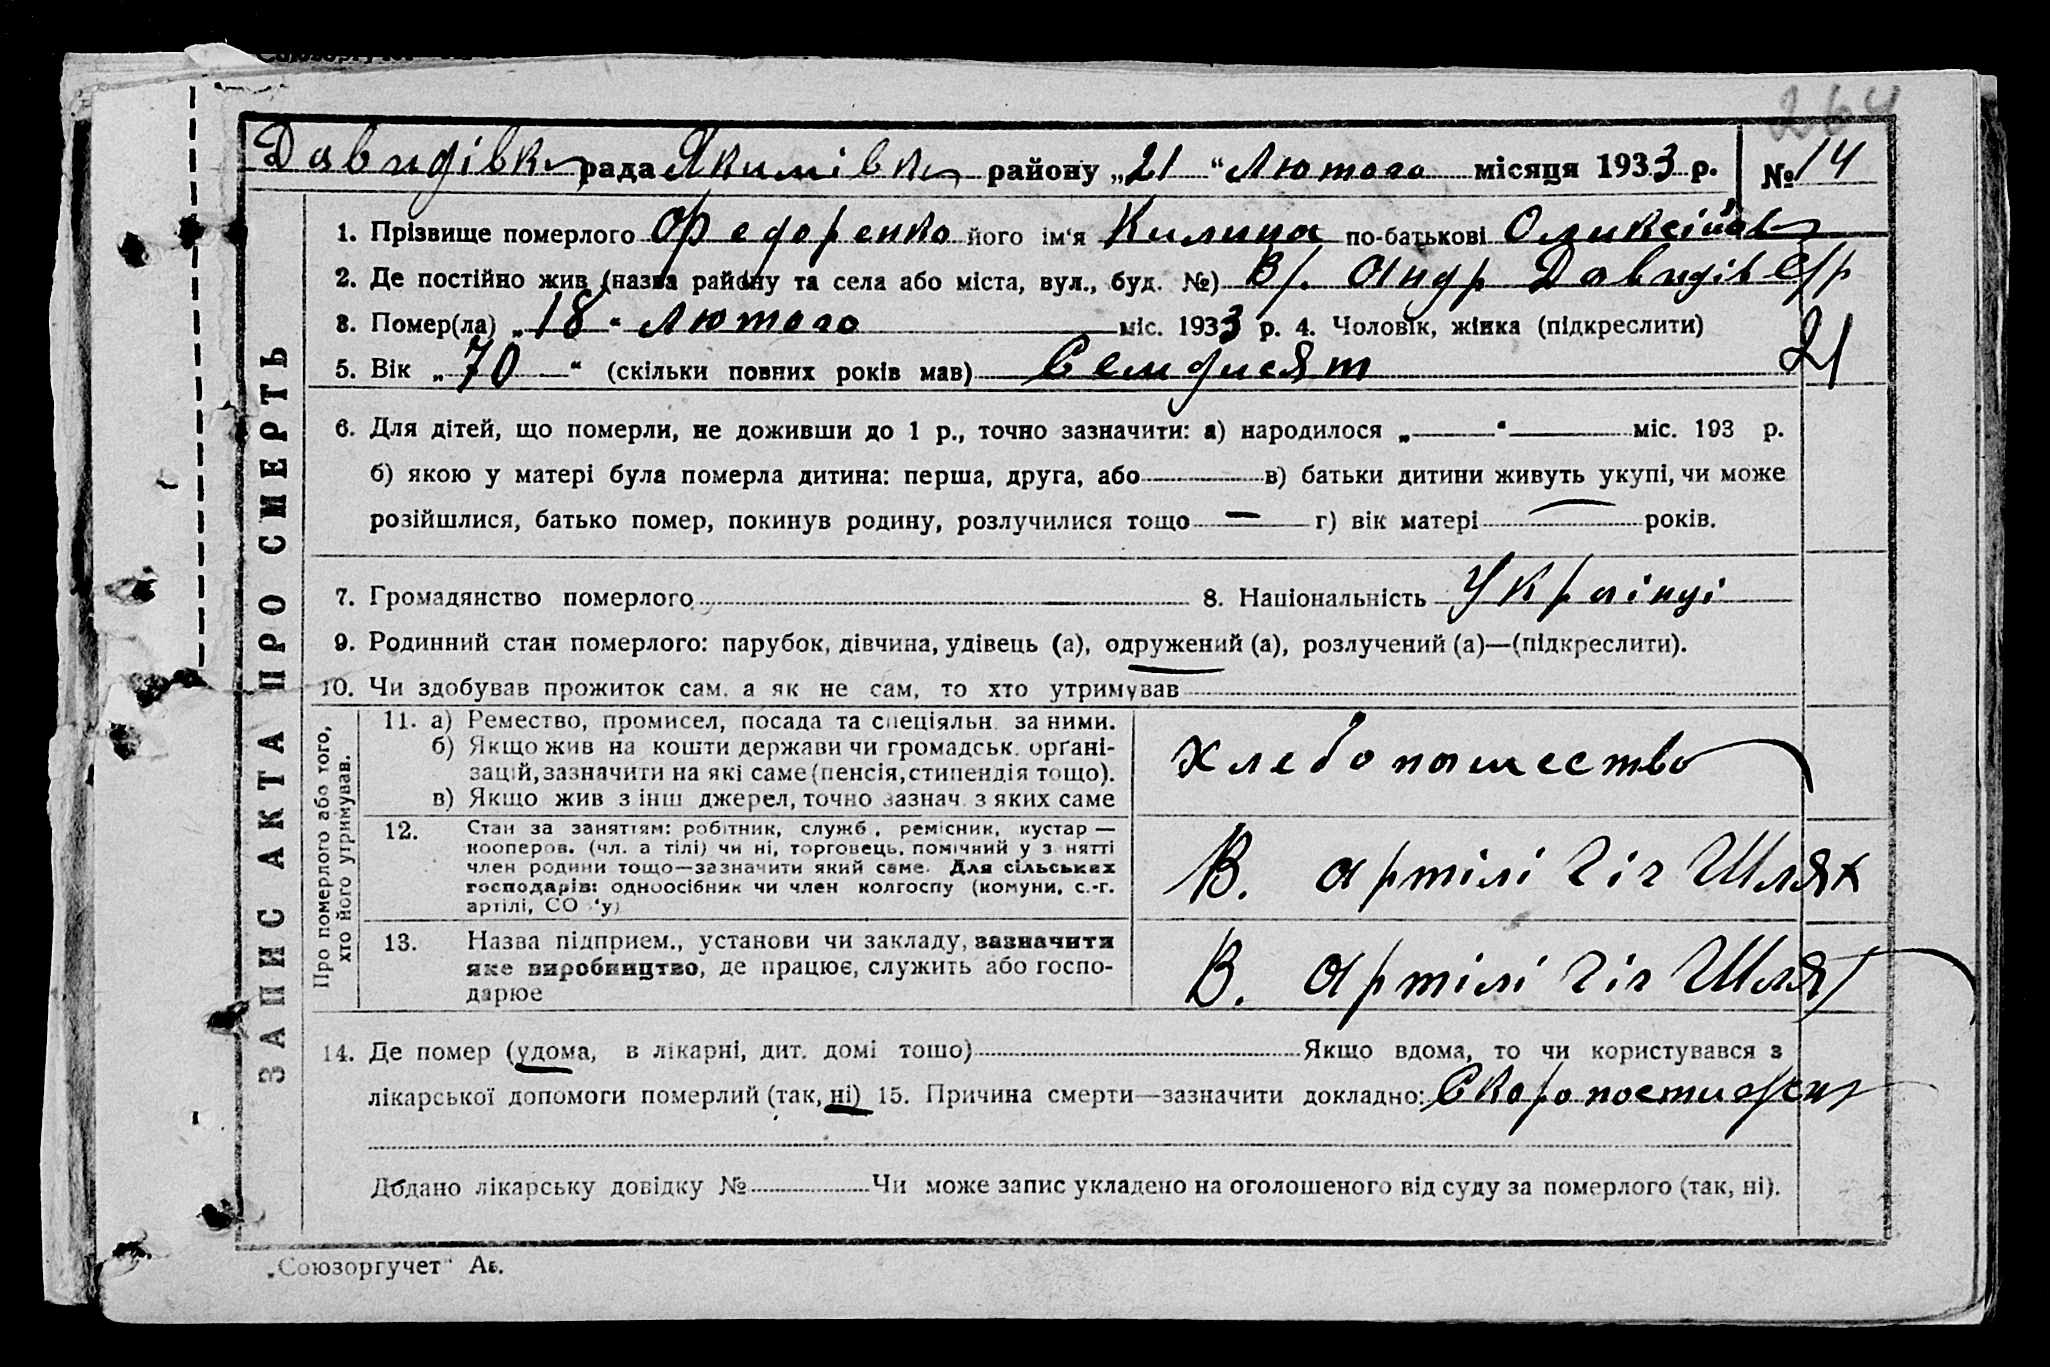 264
Давидівка рада Якимівка району „21“ Лютого місяця 1933 р. № 14
ЗАПИС АКТА ПРО СМЕРТЬ
1. Прізвище померлого Федоренко його ім‘я Килина по-батькові Оликсійов
2. Де постійно жив (назва району та села або міста, вул., буд. №) Андр Давидів С/р
3. Помер(ла) „18“ Лютого міс. 1933 р. 4. Чоловік, жінка (підкреслити)
5. Вік „70“ (скільки повних років мав) Семдисят 21
6. Для дітей, що померли, не доживши до 1 р., точно зазначити: а) народилося „—“ — міс. 193 р.
б) якою у матері була померла дитина: перша, друга, або в) батьки дитини живуть укупі, чи може
розійшлися, батько помер, покинув родину, розлучилися тощо — г) вік матері — років.
7. Громадянство померлого 8. Національність Українці
9. Родинний стан померлого: парубок, дівчина, удівець (а), одружений (а), розлучений (а)—(підкреслити).
10. Чи здобував прожиток сам, а як не сам, то хто утримував
Про померлого або того,
хто його утримував.
11. а) Ремество, промисел, посада та спеціяльн. за ними.
б) Якщо жив на кошти держави чи громадськ. орґані-
зацій, зазначити на які саме (пенсія, стипендія тощо).
в) Якщо жив з інш джерел, точно зазнач. з яких саме
хлебопашество
12. Стан за заняттям: робітник, служб., ремісник, кустар —
кооперов. (чл. а тілі) чи ні, торговець, помічний у з нятті
член родини тощо—зазначити який саме. Для сільських
господарів: одноосібник чи член колгоспу (комуни, с.-г.
артілі, СО ‘у)
В. артілі Шлях
13. Назва підприєм., установи чи закладу, зазначити
яке виробництво, де працює, служить або госпо-
дарює
В. артілі Шлях
14. Де помер (удома, в лікарні, дит. домі тощо) Якщо вдома, то чи користувався з
лікарської допомоги померлий (так, ні) 15. Причина смерти—зазначити докладно: Скоропостижн
Додано лікарську довідку № Чи може запис укладено на оголошеного від суду за померлого (так, ні).
„Союзоргучет“